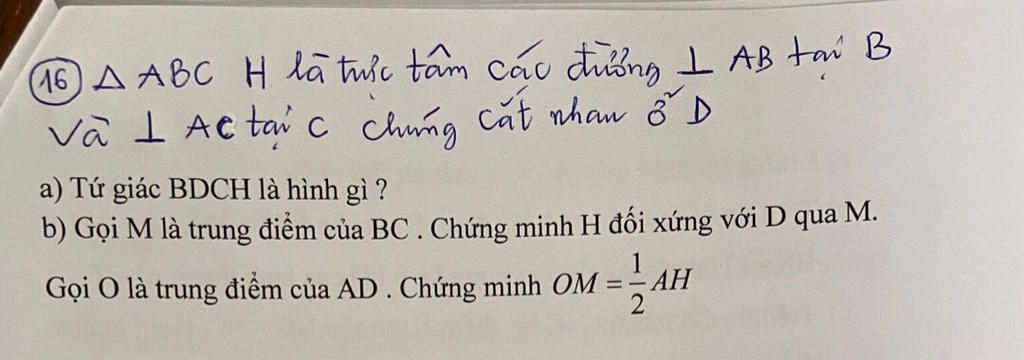 16 Δ ABC H là trực tâm các đường ⊥ AB tại B
Và ⊥ AC tại C chúng cắt nhau ở D
a) Tứ giác BDCH là hình gì ?
b) Gọi M là trung điểm của BC . Chứng minh H đối xứng với D qua M.
Gọi O là trung điểm của AD . Chứng minh OM = 1/2 AH